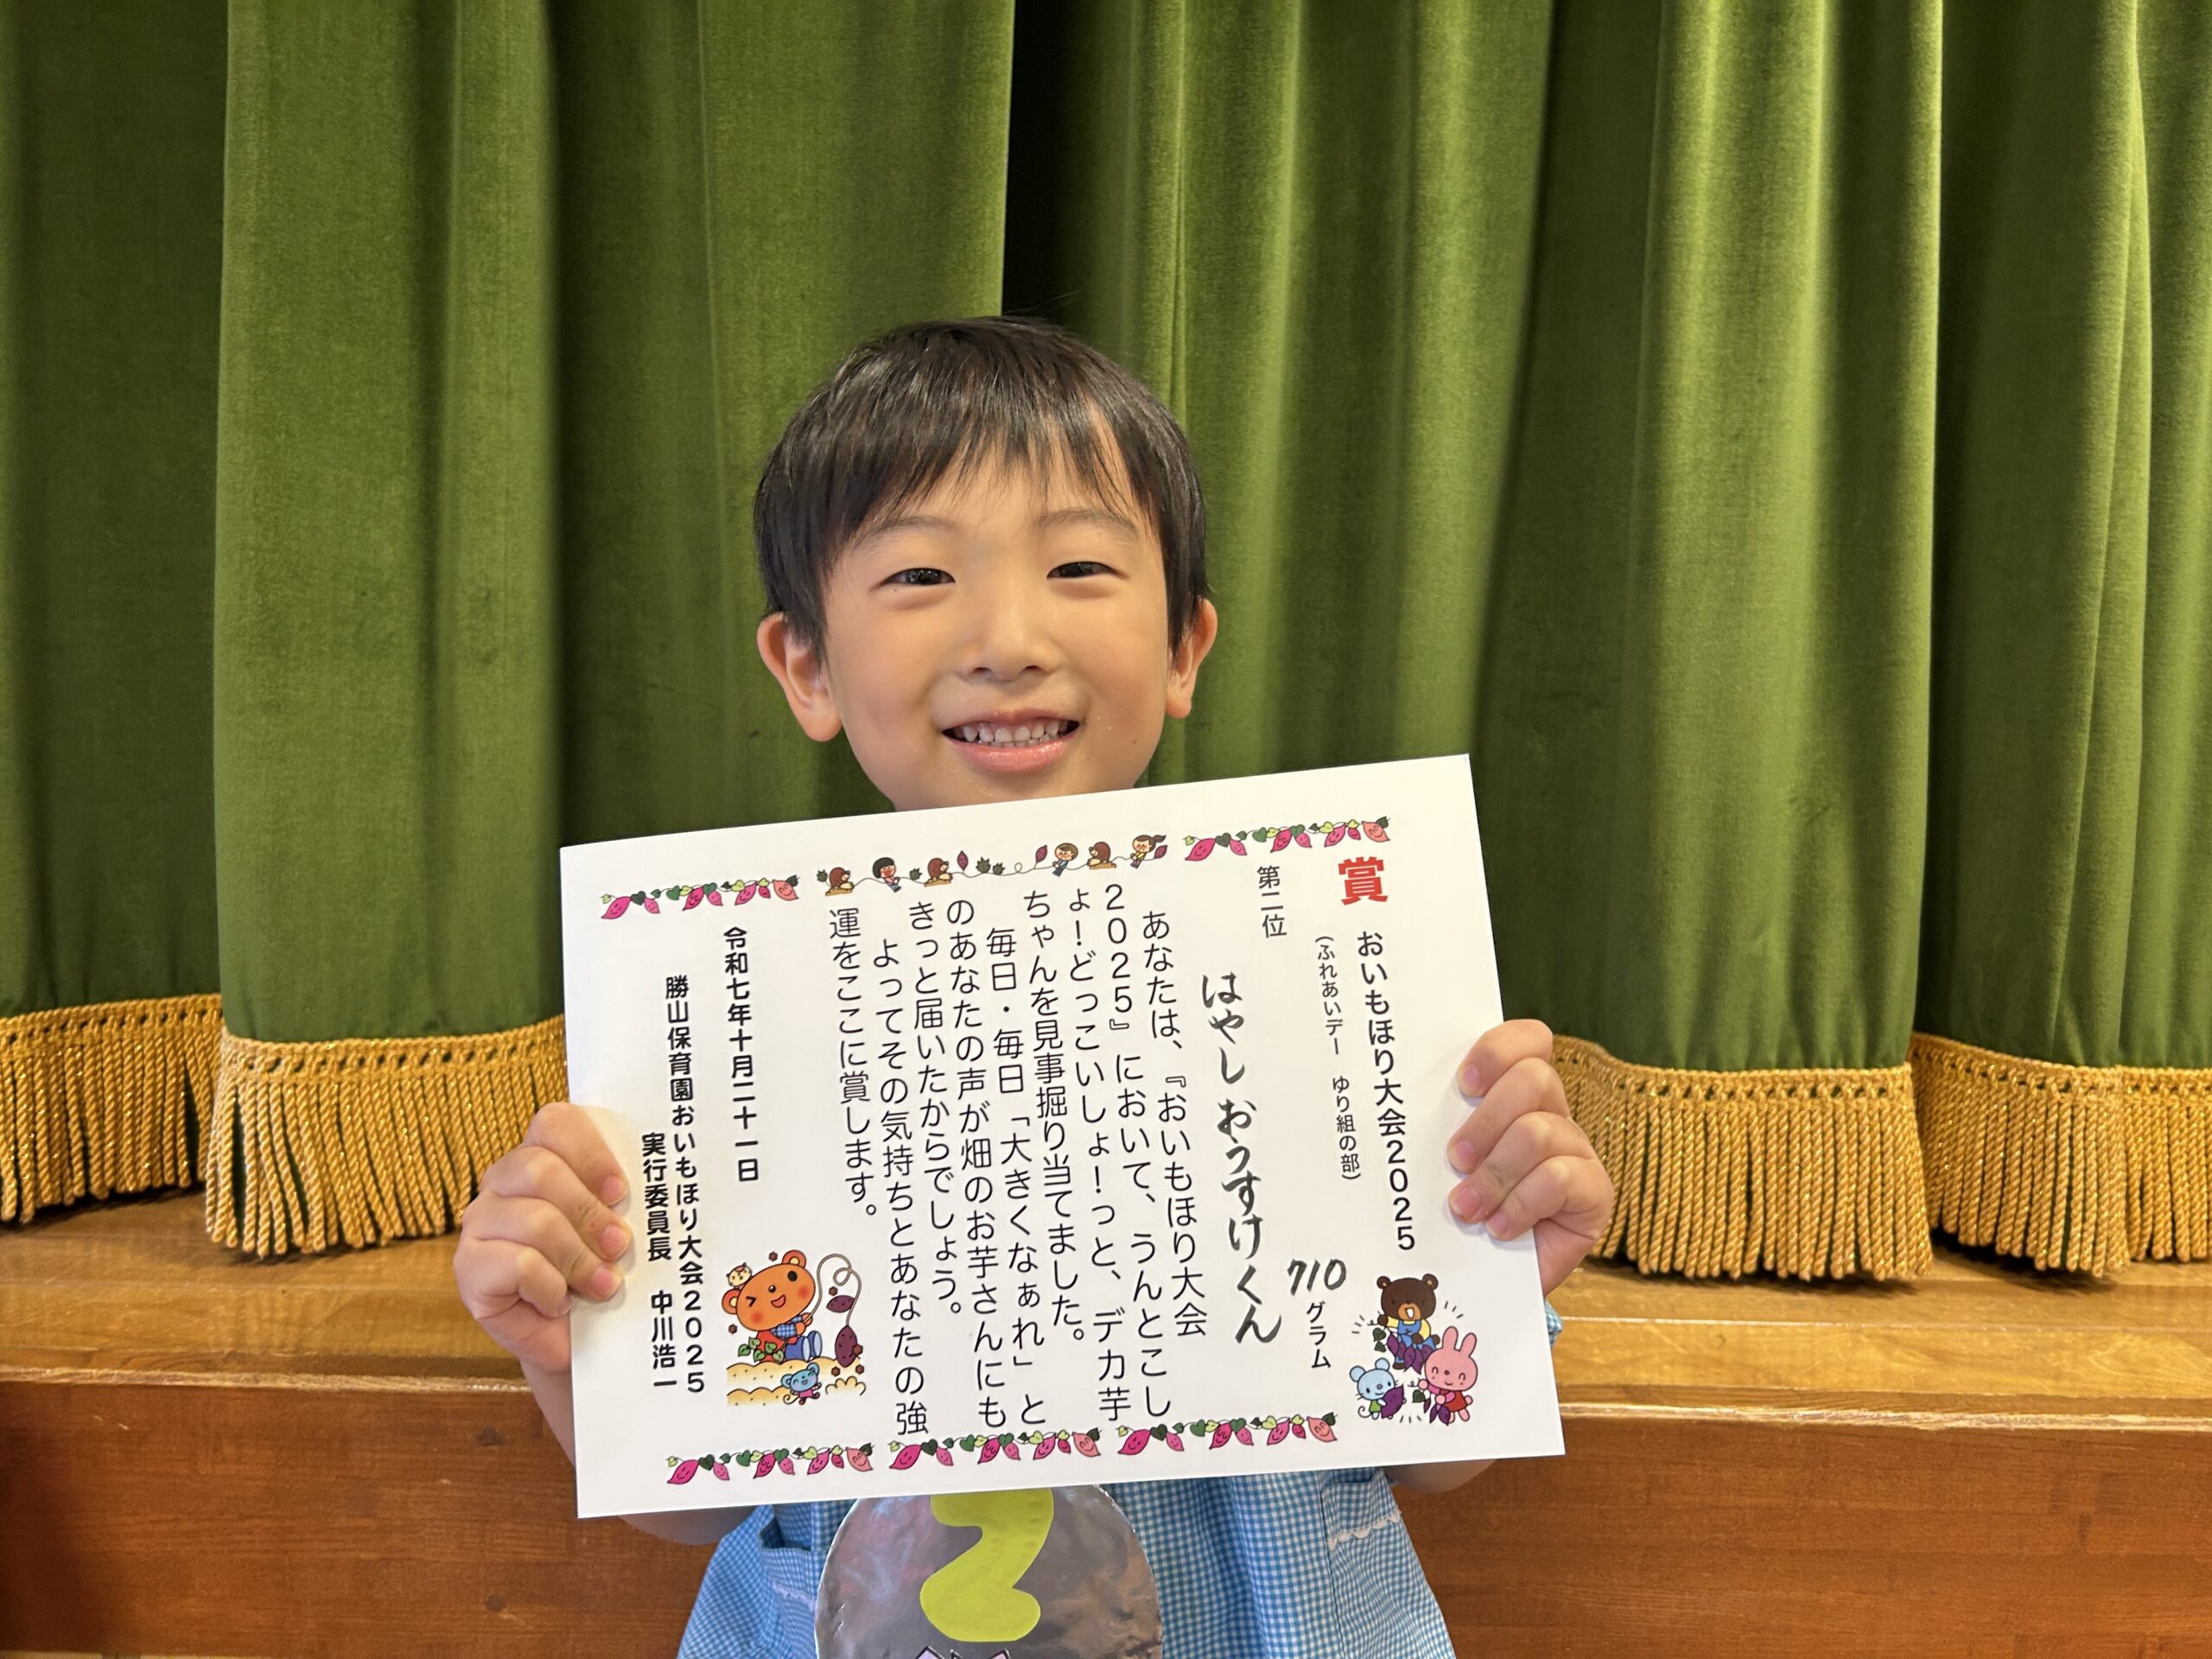 賞　おいもほり大会2025
(ふれあいデー　ゆり組の部)
第二位　710グラム
はやし おうすけくん
あなたは、『おいもほり大会
2025』において、うんとこし
ょ!どっこいしょ!っと、デカ芋
ちゃんを見事掘り当てました。
毎日・毎日「大きくなぁれ」と
のあなたの声が畑のお芋さんにも
きっと届いたからでしょう。
よってその気持ちとあなたの強
運をここに賞します。
令和七年十月二十一日
勝山保育園おいもほり大会2025
実行委員長　中川浩一
2